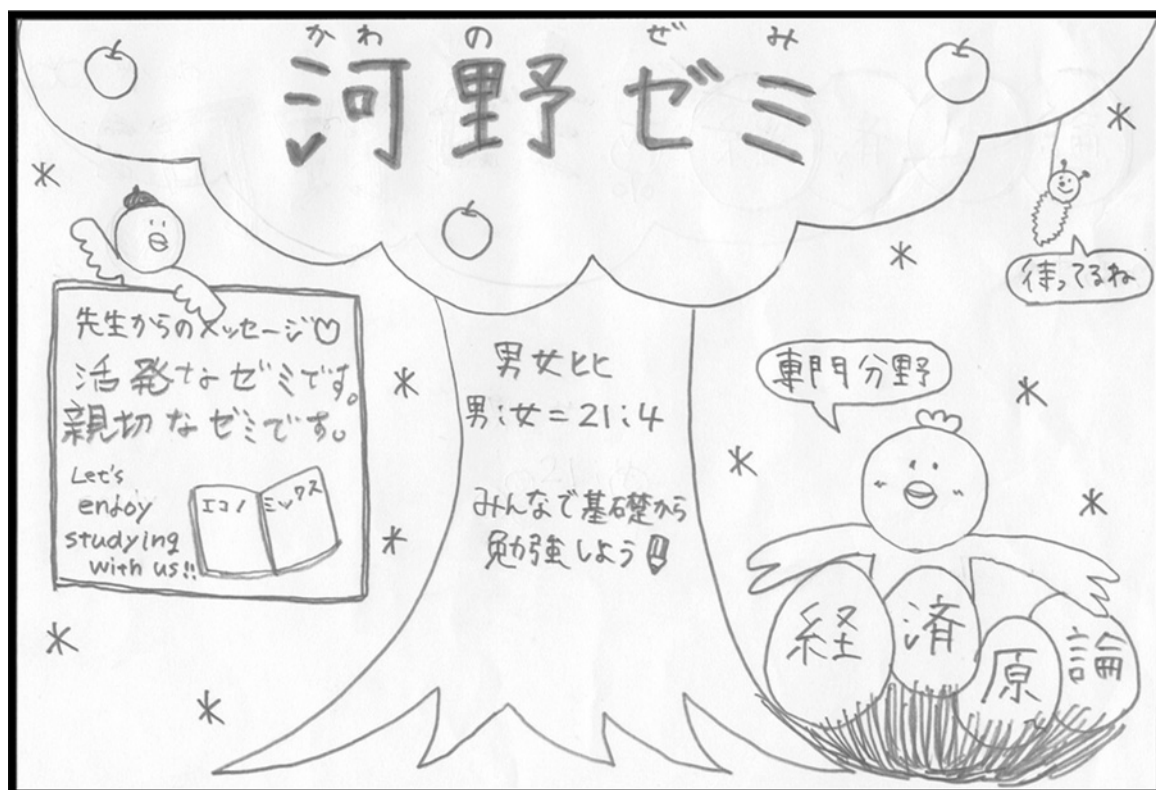 かわの ぜみ
河野 ゼミ
待ってるね
先生からのメッセージ♡
活発なゼミです。
親切なゼミです。
Let's
enjoy
studying
with us!!
エコノミックス
男女比
男:女=21:4
みんなで基礎から
勉強しよう
専門分野
経済原論